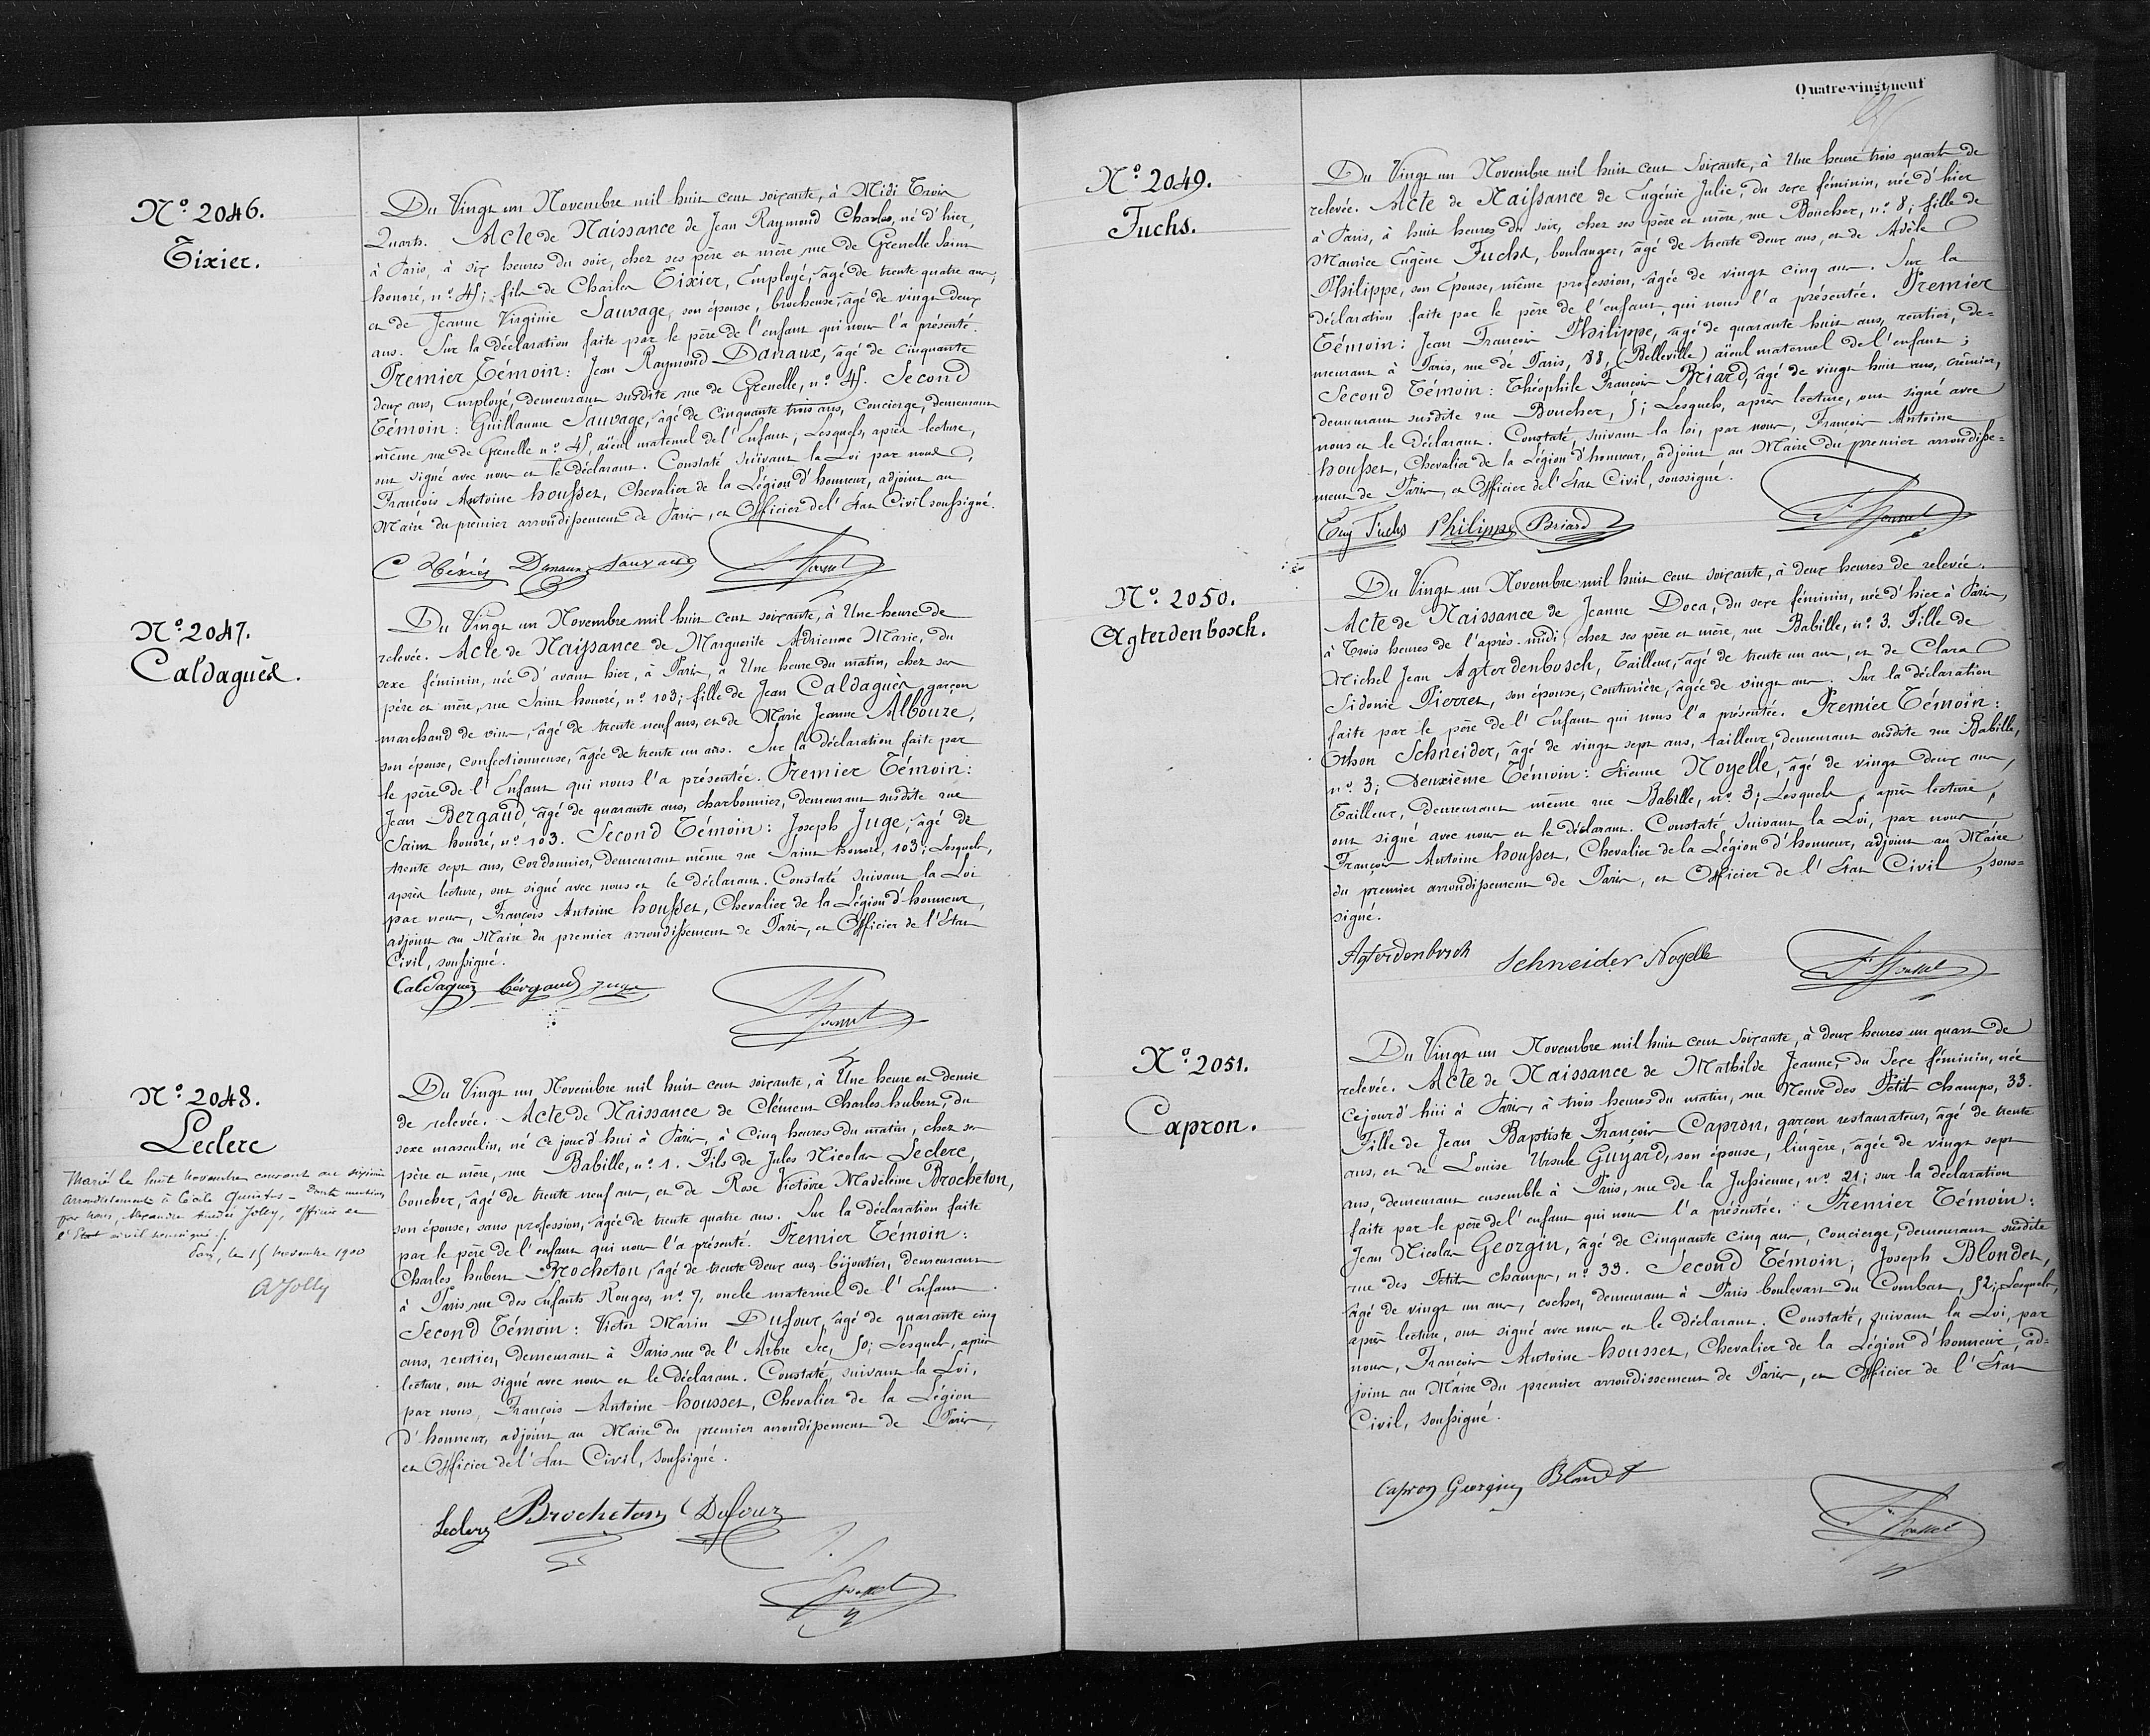 N.º 2046.
Tixier.
Du Vingt un Novembre mil huit cent soixante, à Midi Trois
Quarts. Acte de Naissance de Jean Raymond Charles, né d'hier,
à Paris, à six heures du soir, chez ses père et mère rue de Grenelle Saint
honoré, n.º 45; fils de Charles Tixier, Employé, âgé de trente quatre ans,
et de Jeanne Virginie Sauvage, son épouse, brocheuse, âgé de vingt deux
ans. Sur la déclaration faite par le père de l'enfant qui nous l'a présenté.
Premier Témoin: Jean Raymond Danaux, âgé de cinquante
deux ans, Employé, demeurant susdite rue de Grenelle, n.º 45. Second
Témoin: Guillaume Sauvage, âgé de Cinquante trois ans, Concierge, demeurant
même rue de Grenelle n.º 45, aïeul maternel de l'Enfant, Lesquels, après lecture,
ont signé avec nous et le déclarant. Constaté suivant la Loi par nous,
François Antoine housset, Chevalier de la Légion d'honneur, adjoint au
Maire du premier arrondissement de Paris, et Officier de l'Etat Civil soussigné.
C Tixier Danaux Sauvage F. Housset
N.º 2047.
Caldaguès.
Du Vingt un Novembre mil huit cent soixante, à Une heure de
relevée. Acte de Naissance de Marguerite Adrienne Marie, du
sexe féminin, née d'avant hier, à Paris, à Une heure du matin, chez ses
père et mère, rue Saint honoré, n.º 103; fille de Jean Caldaguès, garçon
marchand de vin, âgé de trente neuf ans, et de Marie Jeanne Albouze,
son épouse, confectionneuse, âgée de trente un ans. Sur la déclaration faite par
le père de l'Enfant qui nous l'a présentée. Premier Témoin:
Jean Bergaud, âgé de quarante ans, charbonnier, demeurant susdite rue
Saint honoré, n.º 103. Second Témoin: Joseph Juge, âgé de
trente sept ans, Cordonnier, demeurant même rue Saint honoré, 103; Lesquels,
après lecture, ont signé avec nous et le déclarant. Constaté suivant la Loi
par nous, François Antoine housset, Chevalier de la Légion d'honneur,
adjoint au Maire du premier arrondissement de Paris, et Officier de l'Etat
Civil, soussigné.
Caldaguès Bergaud Juge
F. Housset
N.º 2048.
Leclerc
Marié le huit Novembre courant au dixième
arrondissement à Cécile - Dont mention
par nous, Alexandre Amédée Jolly, officier de
l'Etat civil soussigné.
Paris, le 15 Novembre 1900
A Jolly
Du Vingt un Novembre mil huit cent soixante, à Une heure et demie
de relevée. Acte de Naissance de Clément Charles hubert, du
sexe masculin, né ce jourd'hui à Paris, à Cinq heures du matin, chez ses
père et mère, rue Babille, n.º 1. Fils de Jules Nicolas Leclerc,
boucher, âgé de trente neuf ans, et de Rose Victoire Madeleine Brocheton,
son épouse, sans profession, âgée de trente quatre ans. Sur la déclaration faite
par le père de l'enfant qui nous l'a présenté. Premier Témoin:
Charles hubert Brocheton, âgé de trente deux ans, bijoutier, demeurant
à Paris rue des Enfants Rouges, n.º 7, oncle maternel de l'Enfant.
Second Témoin: Victor Marin Dufour, âgé de quarante cinq
ans, rentier, demeurant à Paris rue de l'Arbre Sec, 50; Lesquels, après
lecture, ont signé avec nous et le déclarant. Constaté, suivant la Loi,
par nous, François-Antoine housset, Chevalier de la Légion
d'honneur, adjoint au Maire du premier arrondissement de Paris,
et Officier de l'Etat Civil, soussigné.
Leclerc Brocheton Dufour
F. Housset
Quatre-vingt-neuf
N.º 2049.
Fuchs.
Du Vingt un Novembre mil huit cent Soixante, à Une heure trois quarts de
relevée. Acte de Naissance de Eugénie Julie, du sexe féminin, née d'hier
à Paris, à huit heures du soir, chez ses père et mère, rue Boucher, n.º 8; fille de
Maurice Eugène Fuchs, boulanger, âgé de trente deux ans, et de Adèle
Philippe, son Epouse, même profession, âgée de vingt cinq ans. Sur la
déclaration faite par le père de l'enfant, qui nous l'a présentée. Premier
Témoin: Jean François Philippe, âgé de quarante huit ans, rentier, de=
meurant à Paris, rue de Paris, 88, (Belleville) aïeul maternel de l'enfant;
Second Témoin: Théophile François Briard, âgé de vingt huit ans, crémier,
demeurant susdite rue Boucher, 5; Lesquels, après lecture, ont signé avec
nous et le Déclarant. Constaté, suivant la loi, par nous, François Antoine
housset, Chevalier de la Légion d'honneur, adjoint au Maire du premier arrondisse=
ment de Paris, et Officier de l'Etat Civil, soussigné.
Eug Fuchs Philippe Briard F. Housset
N.º 2050.
Agterdenbosch.
Du Vingt un Novembre mil huit cent soixante, à deux heures de relevée.
Acte de Naissance de Jeanne Doca, du sexe féminin, née d'hier à Paris,
à Trois heures de l'après-midi, chez ses père et mère, rue Babille, n.º 3. Fille de
Michel Jean Agterdenbosch, Tailleur, âgé de trente un ans, et de Clara
Sidonie Pierret, son épouse, couturière, âgée de vingt ans. Sur la déclaration
faite par le père de l'Enfant qui nous l'a présentée. Premier Témoin:
Othon Schneider, âgé de vingt sept ans, tailleur, demeurant susdite rue Babille,
n.º 3; Deuxième Témoin: Etienne Noyelle, âgé de vingt deux ans,
Tailleur, demeurant même rue Babille, n.º 3; Lesquels, après lecture,
ont signé avec nous et le déclarant. Constaté suivant la Loi, par nous
François Antoine housset, Chevalier de la Légion d'honneur, adjoint au Maire
du premier arrondissement de Paris, et Officier de l'Etat Civil, sous=
signé.
Agterdenbosch Schneider Noyelle F. Housset
N.º 2051.
Capron.
Du Vingt un Novembre mil huit cent Soixante, à deux heures un quart de
relevée. Acte de Naissance de Mathilde Jeanne, du Sexe féminin, née
Cejourd'hui à Paris, à trois heures du matin, rue Neuve des Petits champs, 33.
Fille de Jean Baptiste François Capron, garçon restaurateur, âgé de trente
ans, et de Louise Ursule Guyard, son épouse, lingère, âgée de vingt sept
ans, demeurant ensemble à Paris, rue de la Jussienne, n.º 21; sur la déclaration
faite par le père de l'enfant qui nous l'a présentée. Premier Témoin:
Jean Nicolas Georgin, âgé de Cinquante cinq ans, Concierge, demeurant susdite
rue des Petits champs, n.º 33. Second Témoin, Joseph Blondet,
âgé de vingt un ans, cocher, demeurant à Paris boulevart du Combat, 52; Lesquels,
après lecture, ont signé avec nous et le déclarant. Constaté, suivant la Loi, par
nous, François Antoine housset, Chevalier de la Légion d'honneur, ad=
joint au Maire du premier arrondissement de Paris, et Officier de l'Etat
Civil, soussigné.
Capron Georgin Blondet
F. Housset